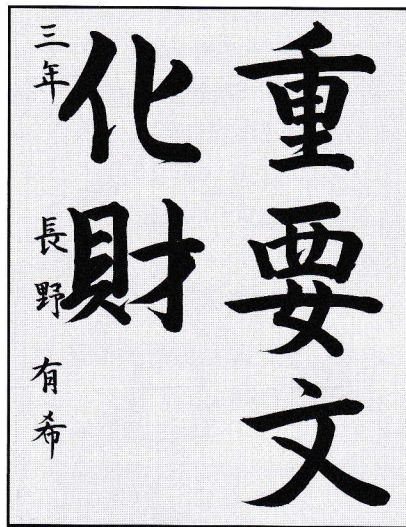 重要文
化財
三年 長野有希